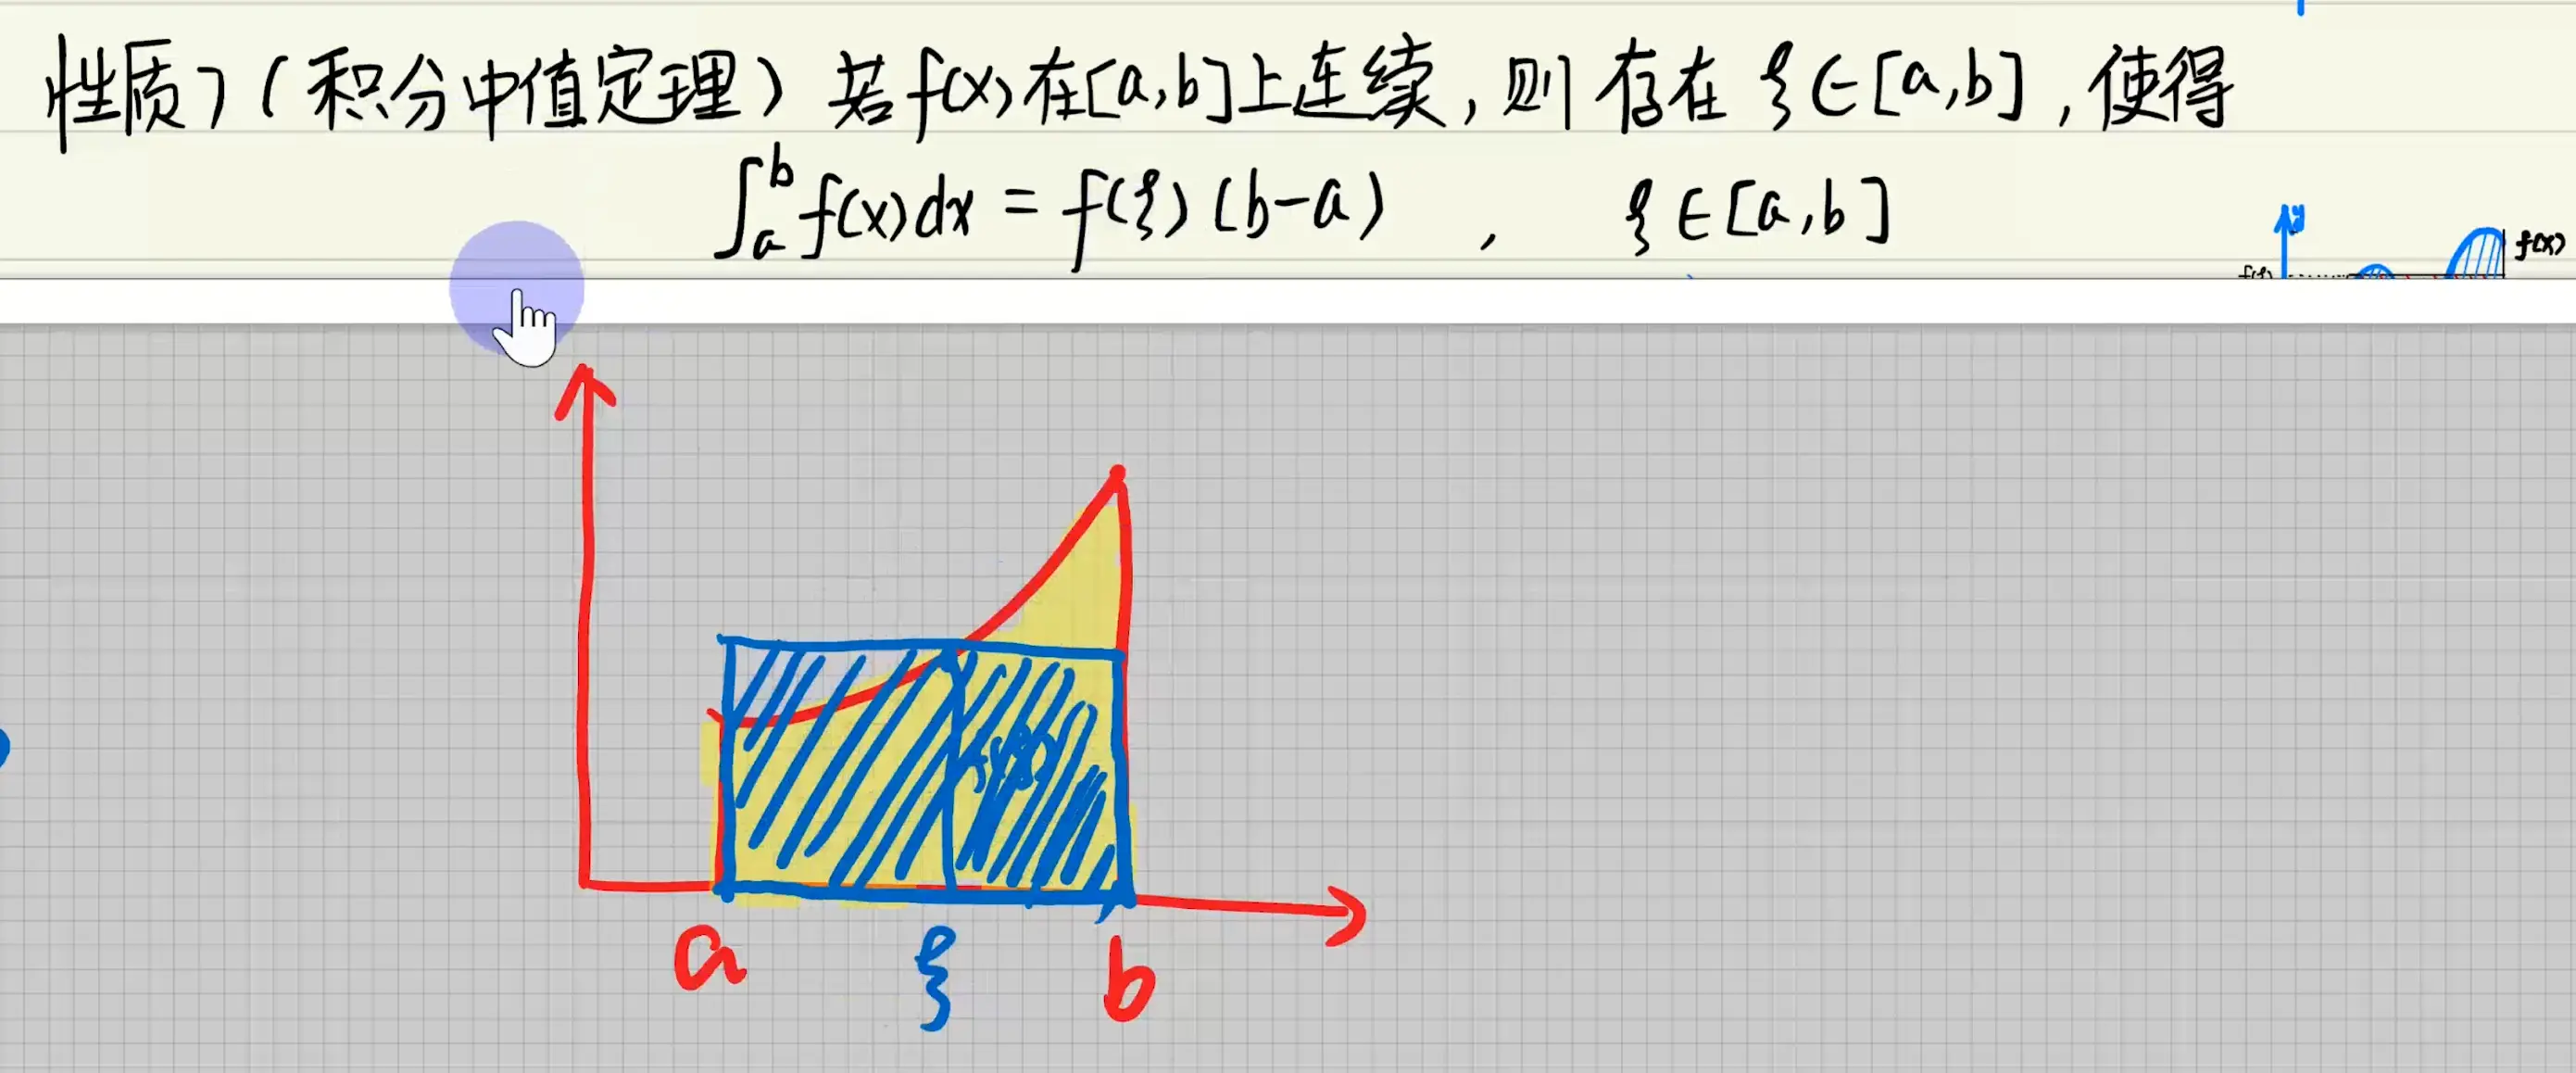 性质7（积分中值定理）若f(x)在[a,b]上连续,则存在ξ∈[a,b],使得
∫_a^b f(x)dx = f(ξ)(b-a) , ξ∈[a,b]
y
f(x)
f(ξ)
a
ξ
b